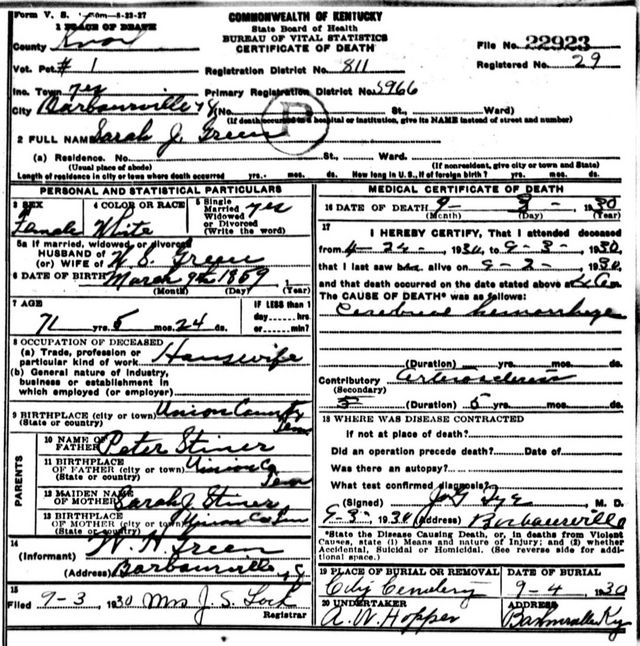 Form V. S. 8-23-27
COMMONWEALTH OF KENTUCKY
State Board of Health
BUREAU OF VITAL STATISTICS
CERTIFICATE OF DEATH
1 PLACE OF DEATH
County Knox
File No. 22923
Registered No. 29
Vot. Pct. # 1
Registration District No. 811
Inc. Town yes
Primary Registration District No. 5966
City Barbourville Ky (No. St., Ward)
(If death occurred in a hospital or institution, give its NAME instead of street and number)
P
2 FULL NAME Sarah J Green
(a) Residence. No. St., Ward.
(Usual place of abode) (If nonresident, give city or town and State)
Length of residence in city or town where death occurred yrs. mos. ds. How long in U. S., if of foreign birth? yrs. mos. ds.
PERSONAL AND STATISTICAL PARTICULARS
3 SEX
Female
4 COLOR OR RACE
White
5 Single
Married yes
Widowed
or Divorced
(Write the word)
5a If married, widowed, or divorced
HUSBAND OF
(or) WIFE OF W. S. Green
6 DATE OF BIRTH March 9th 1859
(Month) (Day) (Year)
7 AGE
71 yrs. 5 mos. 24 ds.
IF LESS than 1
day ----- hrs
or ----- min?
8 OCCUPATION OF DECEASED
(a) Trade, profession or
particular kind of work Housewife
(b) General nature of industry,
business or establishment in
which employed (or employer)
9 BIRTHPLACE (city or town) Union County
(State or country) Tenn
PARENTS
10 NAME OF
FATHER Peter Stiner
11 BIRTHPLACE
OF FATHER (city or town) Union Co
(State or country) Tenn
12 MAIDEN NAME
OF MOTHER Sarah J Stiner
13 BIRTHPLACE
OF MOTHER (city or town) Union Co Tenn
(State or country)
14
(Informant) W. H. Green
Barbourville Ky
15
Filed 9-3 1930 Mrs J. S. Lock
Registrar
MEDICAL CERTIFICATE OF DEATH
16 DATE OF DEATH 9- 3 - 1930
(Month) (Day) (Year)
17
I HEREBY CERTIFY, That I attended deceased
from 4-24- 1930, to 9-3- 1930,
that I last saw alive on 9-2- 1930,
and that death occurred on the date stated above at
The CAUSE OF DEATH* was as follows:
Cerebral hemorrhage
(Duration) yrs. mos. ds.
Contributory Arteriosclerosis
(Secondary)
(Duration) 5 yrs. mos. ds.
18 WHERE WAS DISEASE CONTRACTED
if not at place of death?
Did an operation precede death? Date of
Was there an autopsy?
What test confirmed diagnosis?
(Signed) Jas G Tye M. D.
9-3- 1930 (Address) Barbourville
*State the Disease Causing Death, or, in deaths from Violent
Causes, state (1) Means and nature of Injury; and (2) whether
Accidental, Suicidal or Homicidal. (See reverse side for addi-
tional space.)
19 PLACE OF BURIAL OR REMOVAL
City Cemetery
DATE OF BURIAL
9-4 1930
20 UNDERTAKER
A. W. Hopper
ADDRESS
Barbourville Ky